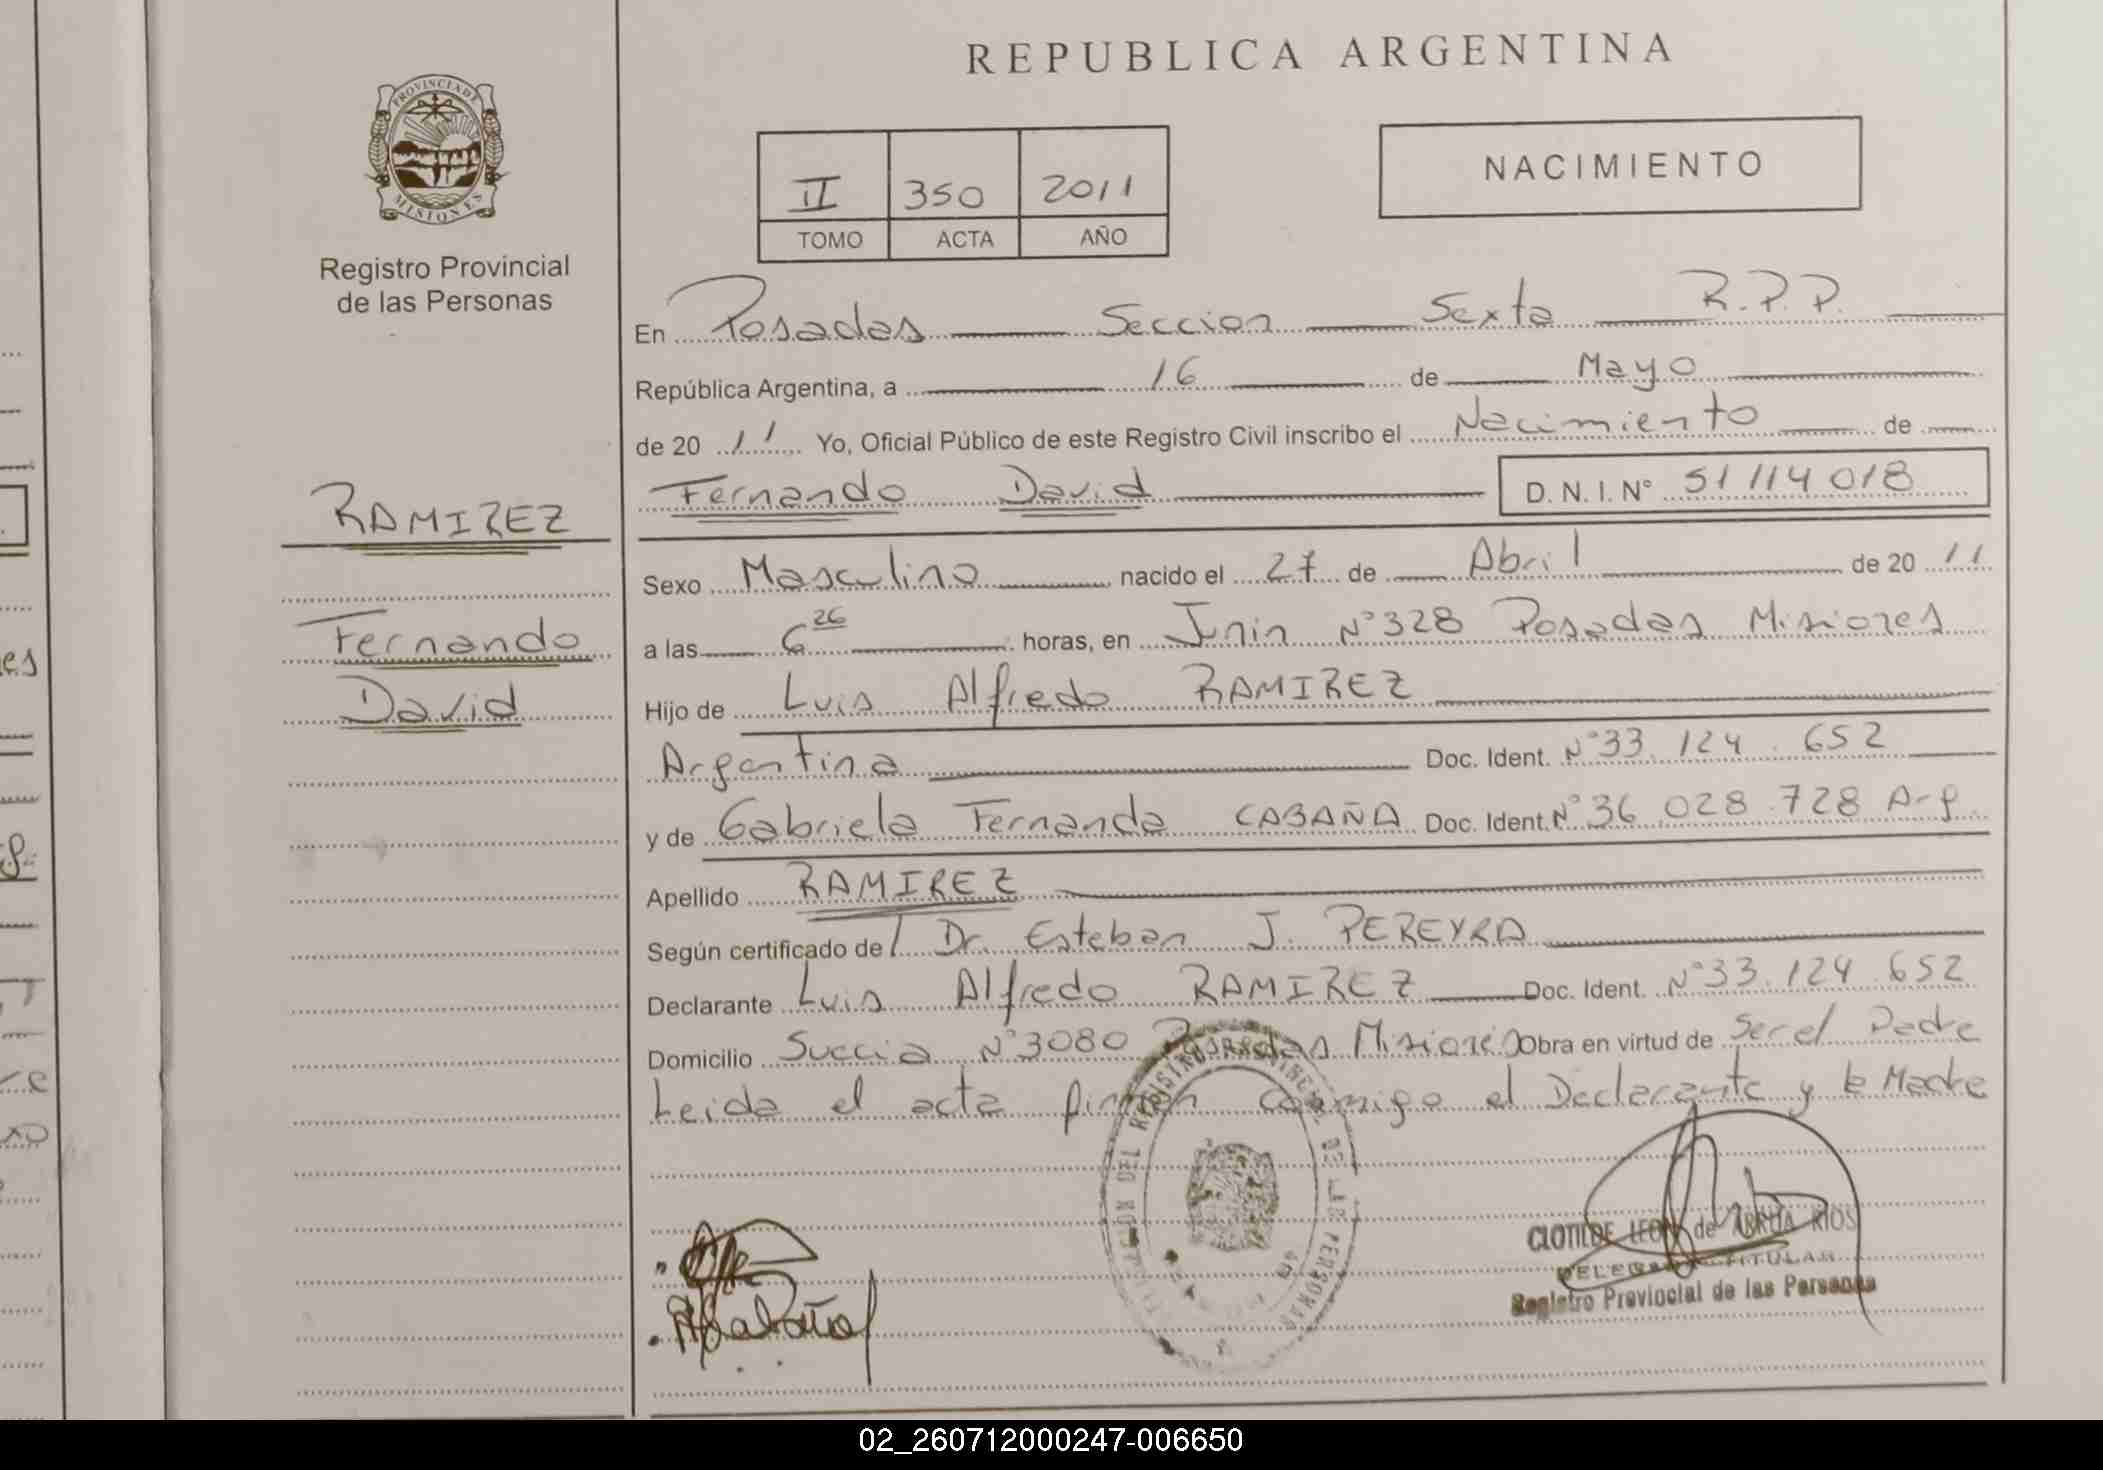 PROVINCIA DE
MISIONES
Registro Provincial
de las Personas
RAMIREZ
Fernando
David
REPUBLICA ARGENTINA
II 350 2011
TOMO ACTA AÑO
NACIMIENTO
En Posadas Seccion Sexta R.P.P.
República Argentina, a 16 de Mayo
de 20 11 Yo, Oficial Público de este Registro Civil inscribo el Nacimiento de
Fernando David D. N. I. N° 51 114 018
Sexo Masculino nacido el 27 de Abril de 20 11
a las 6 26 horas, en Junin N°328 Posadas Misiones
Hijo de Luis Alfredo RAMIREZ
Argentina Doc. Ident. N°33.124.652
y de Gabriela Fernanda CABAÑA Doc. Ident. N°36.028.728 Arg.
Apellido RAMIREZ
Según certificado del Dr. Esteban J. PEREYRA
Declarante Luis Alfredo RAMIREZ Doc. Ident. N°33.124.652
Domicilio Suecia N°3080 Posadas Misiones Obra en virtud de Ser el Padre
Leida el acta firman conmigo el Declarante y la Madre
CLOTILDE LEON de ABREU RIOS
DELEGADA TITULAR
Registro Provincial de las Personas
02_260712000247-006650